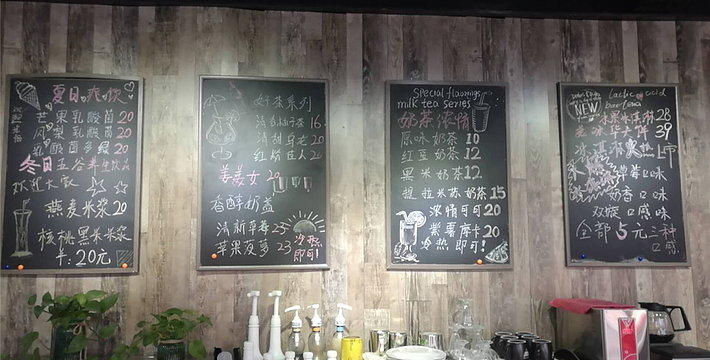 夏日爽饮
芒果乳酸菌20
凤梨乳酸菌20
乳酸菌多绿20
冬日五谷养生饮品
燕麦米浆20
核桃黑米米浆
20元
好茶系列
16
清甜乌龙20
红粉佳人20
姜姜女
香醇奶盖
清新草莓25
苹果菠萝23
冷热
即可!
Special flavorings
milk tea series
奶茶浓情
原味奶茶10
红豆奶茶12
黑米奶茶12
提拉米苏奶茶15
浓情可可20
紫薯摩卡20
冷热即可!
NEW
Lactic acid
bacteria
水果冰淇淋28
华大阵39
冰淇淋
草莓口味
奶香口味
双凝口感味
全部5元三种
口感